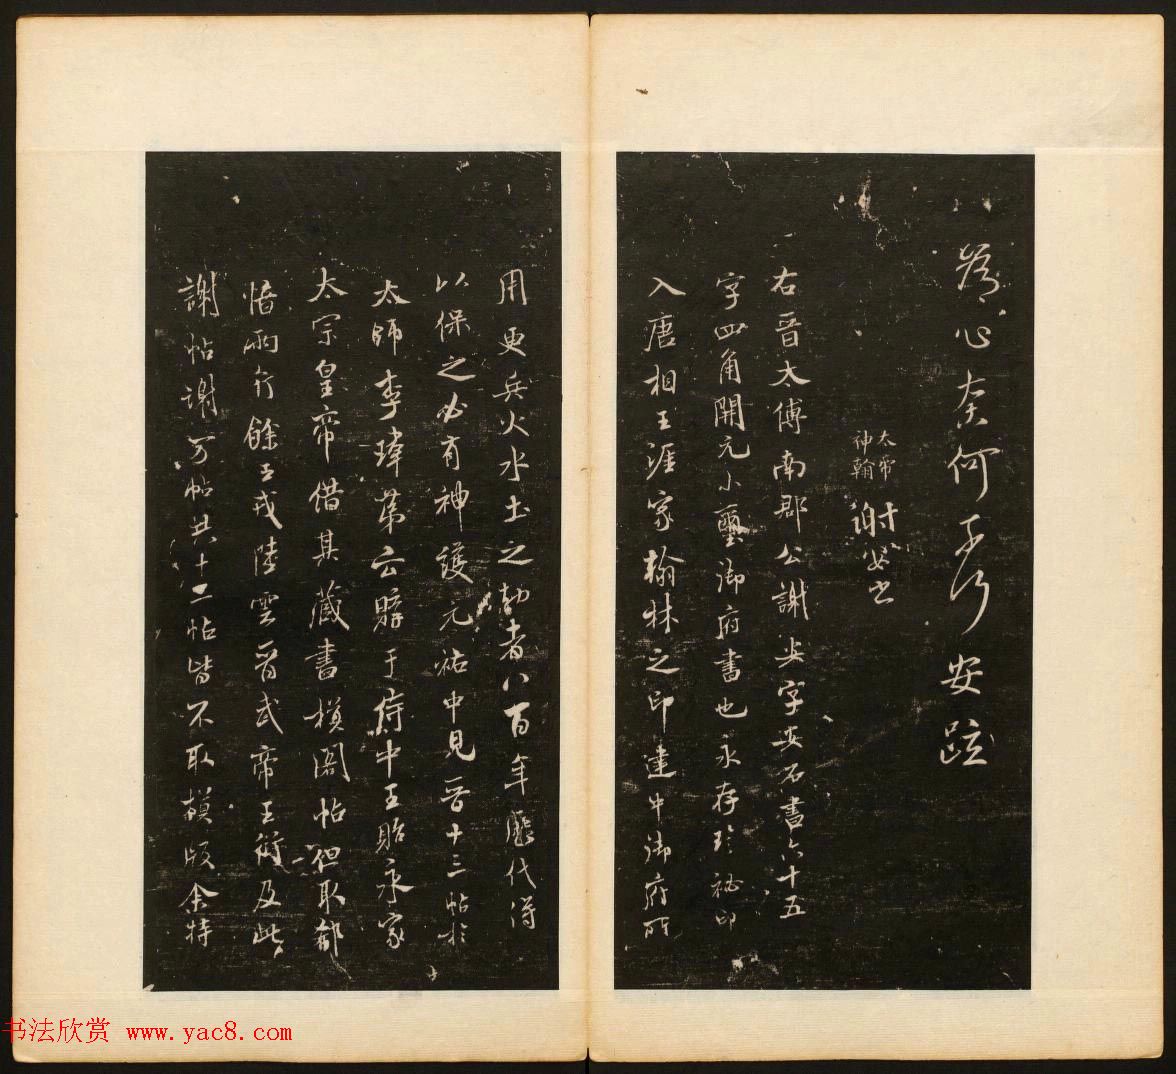 心奈何安疏
神翰
謝安書
右晉太傅南郡公謝安字安石書六十五
字四角開元小璽御府書也永存珍祕印
入唐相王涯家翰林之印建中御府所
用更兵火水土之劫者八百年歷代得
以保之必有神護元祐中見晉十三帖於
太師李瑋第云購于侍中王貽永家
太宗皇帝借其藏書模閣帖但取郗
愔兩行餘王戎陸雲晉武帝王衍及此
謝帖謝万帖共十二帖皆不取模版余特
书法欣赏 www.yac8.com